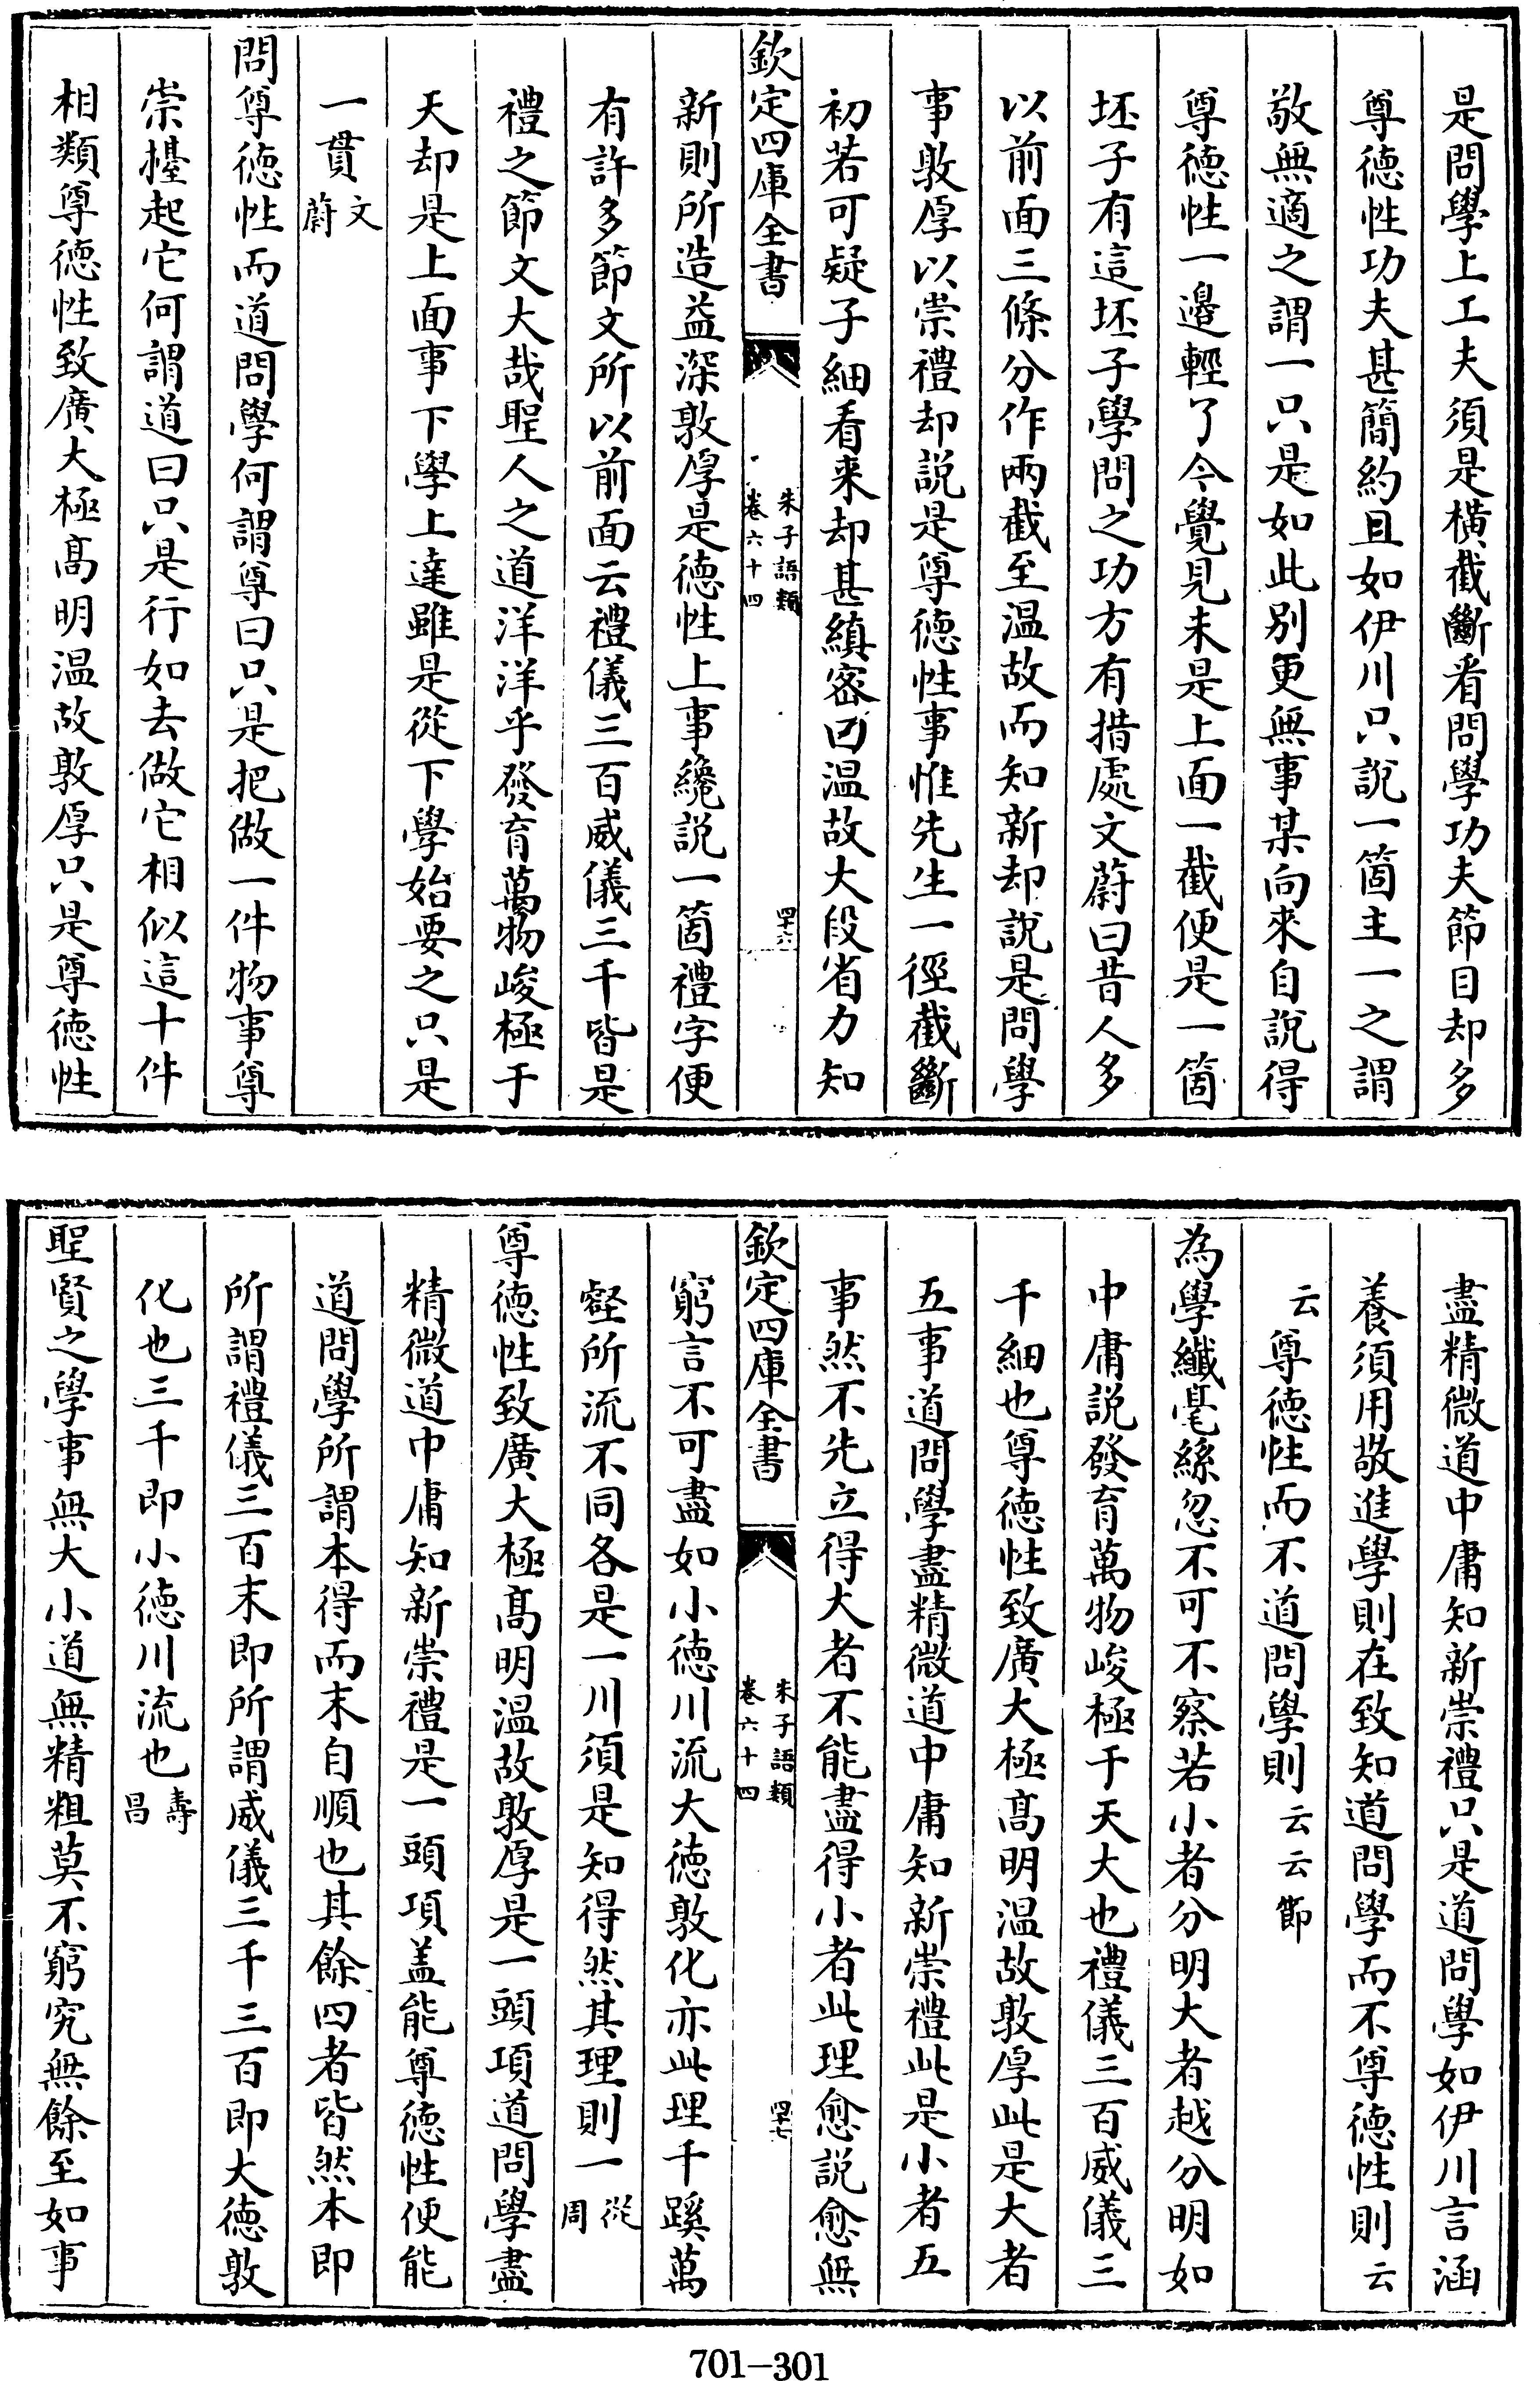 是問學上工夫須是橫截斷看問學功夫節目却多
尊徳性功夫甚簡約且如伊川只說一箇主一之謂
敬無適之謂一只是如此别更無事某向來自說得
尊徳性一邉輕了今覺見未是上面一截便是一箇
坯子有這坯子學問之功方有措處文蔚曰昔人多
以前面三條分作兩截至温故而知新却說是問學
事敦厚以崇禮却說是尊徳性事惟先生一徑截斷
初若可疑子細看来却甚縝密曰温故大段省力知
欽定四庫全書
朱子語類
卷六十四
四十六
新則所造益深敦厚是徳性上事纔說一箇禮字便
有許多節文所以前面云禮儀三百威儀三千皆是
禮之節文大哉聖人之道洋洋乎發育萬物峻極于
天却是上面事下學上達雖是從下學始要之只是
一貫文蔚
問尊徳性而道問學何謂尊曰只是把做一件物事尊
崇擡起它何謂道曰只是行如去做它相似這十件
相類尊徳性致廣大極髙明温故敦厚只是尊徳性
盡精微道中庸知新崇禮只是道問學如伊川言涵
養須用敬進學則在致知道問學而不尊徳性則云
云尊徳性而不道問學則云云節
為學纎毫絲忽不可不察若小者分明大者越分明如
中庸說發育萬物峻極于天大也禮儀三百威儀三
千細也尊徳性致廣大極髙明温故敦厚此是大者
五事道問學盡精微道中庸知新崇禮此是小者五
事然不先立得大者不能盡得小者此理愈說愈無
欽定四庫全書
朱子語類
卷六十四
四十七
窮言不可盡如小徳川流大徳敦化亦此理千蹊萬
壑所流不同各是一川須是知得然其理則一從周
尊徳性致廣大極髙明温故敦厚是一頭項道問學盡
精微道中庸知新崇禮是一頭項盖能尊徳性便能
道問學所謂本得而末自順也其餘四者皆然本即
所謂禮儀三百末即所謂威儀三千三百即大徳敦
化也三千即小徳川流也壽昌
聖賢之學事無大小道無精粗莫不窮究無餘至如事
701-301